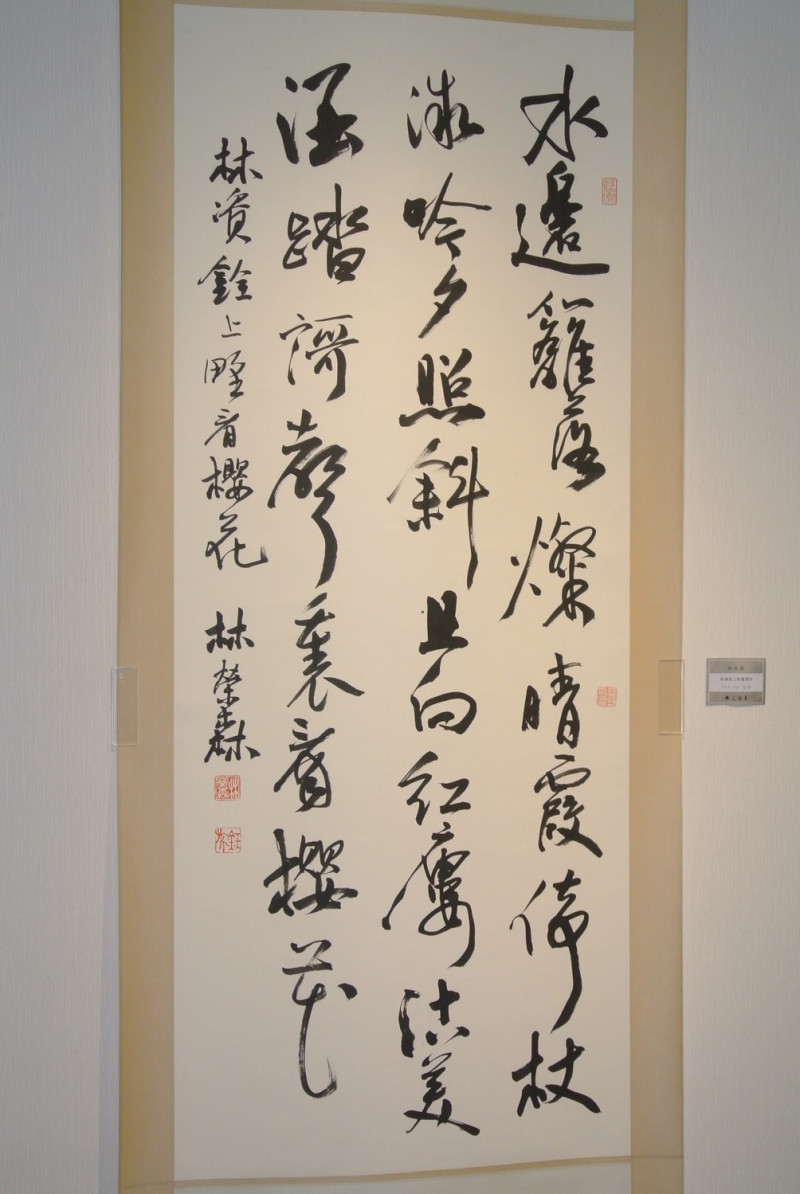 水邊籬落燦晴霞倚杖
微吟夕照斜且向紅廔沽美
酒踏謌聲裏看櫻花
林資銓上野看櫻花 林榮森